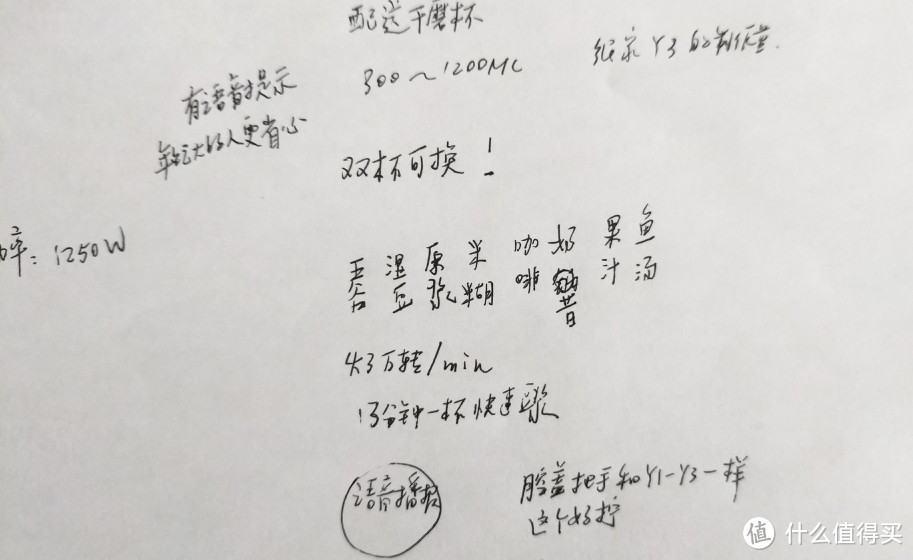 配送干磨杯
300～1200ML
继承Y3的制作量.
有语音提示
年纪大的人更省心
双杯可换！
率：1250W
五谷 湿豆 原浆 米糊 咖啡 奶昔 果汁 鱼汤
4.3万转/min
13分钟一杯快速浆
语音播报
腔盖把手和Y1-Y3一样
这个好拧
值 什么值得买